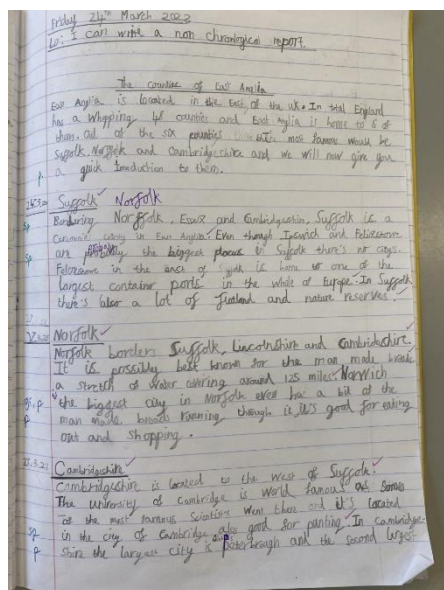 Friday 24th March 2023
Lo: I can write a non chronological report.
The counties of East Anglia
East Anglia is located in the East of the UK. In total England
has a whopping 48 counties and East Anglia is home to 6 of
them. Out of the six counties the most famous would be
Suffolk, Norfolk and Cambridgeshire and we will now give you
a quick to them.
Suffolk Norfolk
Bordering Norfolk, Essex and Cambridgeshire, Suffolk is a
county in East Anglia. Even though Ipswich and Felixstowe
are the biggest places in Suffolk there's no citys.
Felixstowe in the east of is home to one of the
largest container ports in the whole of Europe. In Suffolk
there's also a lot of and nature reserves.
Norfolk
Norfolk borders Suffolk, Lincolnshire and Cambridgeshire.
It is possibly best known for the man made
a stretch of water covering around 125 miles. Norwich
the biggest city in Norfolk even has a bit of the
man made broads running though it, it's good for eating
out and shopping.
Cambridgeshire
Cambridgeshire is located to the West of Suffolk.
The university of Cambridge is world famous as some
of the most famous scientists went there and it's located
in the city of Cambridge also good for punting. In Cambridge-
shire the largest city is and the second largest